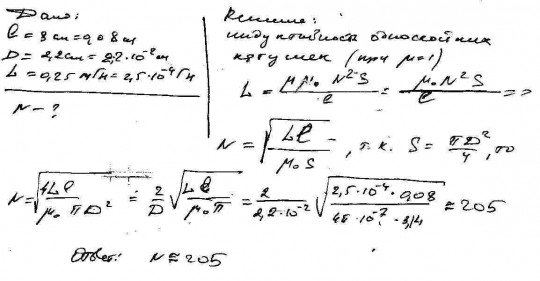 Дано:
l = 8 см = 0,08 м
D = 2,2 см = 2,2·10⁻² м
L = 0,25 мГн = 2,5·10⁻⁴ Гн
N - ?
Решение:
индуктивность однослойных
катушек (при μ=1)
L = μμ₀ N² S / l = μ₀ N² S / l =>
N = √(Ll / μ₀ S), т.к. S = πD² / 4, то
N = √(4Ll / μ₀ π D²) = 2/D √(Ll / μ₀ π) = 2 / 2,2·10⁻² √(2,5·10⁻⁴ · 0,08 / 4π·10⁻⁷ · 3,14) ≈ 205
Ответ: N ≈ 205